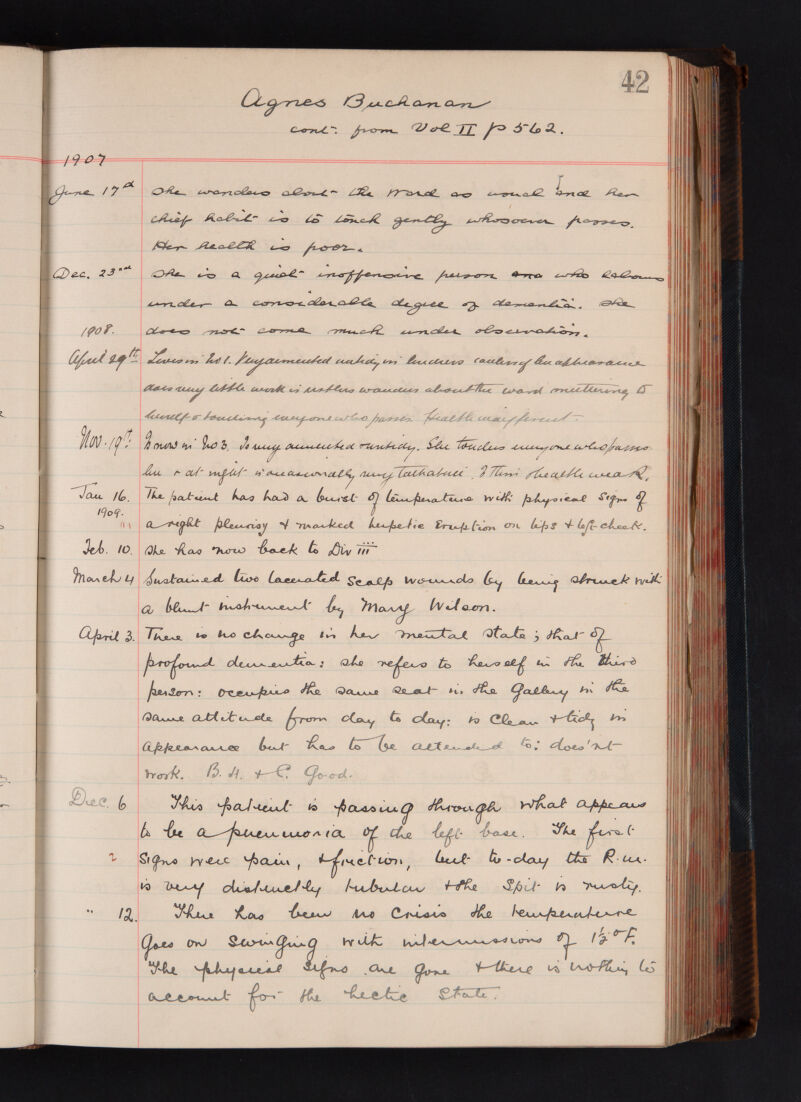 42
Agnes Buchanan
cont: from Vol II p 562.
1907
June 17th She wanders about the Ward as usual and her
chief habit is to touch gently whosoever passes.
Her health is poor.
Dec. 23rd She is a quiet inoffensive person who labours
under a considerable degree of dementia. She
1908. does not come much under observation.
April 29th Lives in No 1. Very demented untidy in her dress careless of her appearance
does very little work is restless wanders about the ward muttering to
herself & touching everyone who passes. Health indifferent
Nov. 19th Is now in No 3. Is very demented & untidy. She touches everyone who passes
her & at night is occasionally very talkative. Is thin & health weak.
Jan 16. The patient has had a burst of temperature with physical signs of
1909. a right pleurisy & marked herpetic Eruption on lips & left cheek.
Feb. 10. She has now back to Div III
March 4 Sustained two lacerated scalp wounds by being struck with
a blunt instrument by Mary Wilson.
April 3. There is no change in her mental state; that of
profound dementia: she refers to herself in the third
person: occupies the same seat in the Gallery in the
same attitude from day to day: is clean & tidy in
appearance but has to be attended to: does'nt
work. B. H. & C. Good.
Dec. 6 This patient is passing through what appears
to be a pneumonia of the left base. The first
2 signs were pain, & friction, but to-day the R.M.
is very distinctly tubular & the spit is rusty.
" 12. There has been no crisis the temperature
goes on swinging with intermissions of 1½° F.
The physical signs are gone & there is nothing to
account for the hectic state.